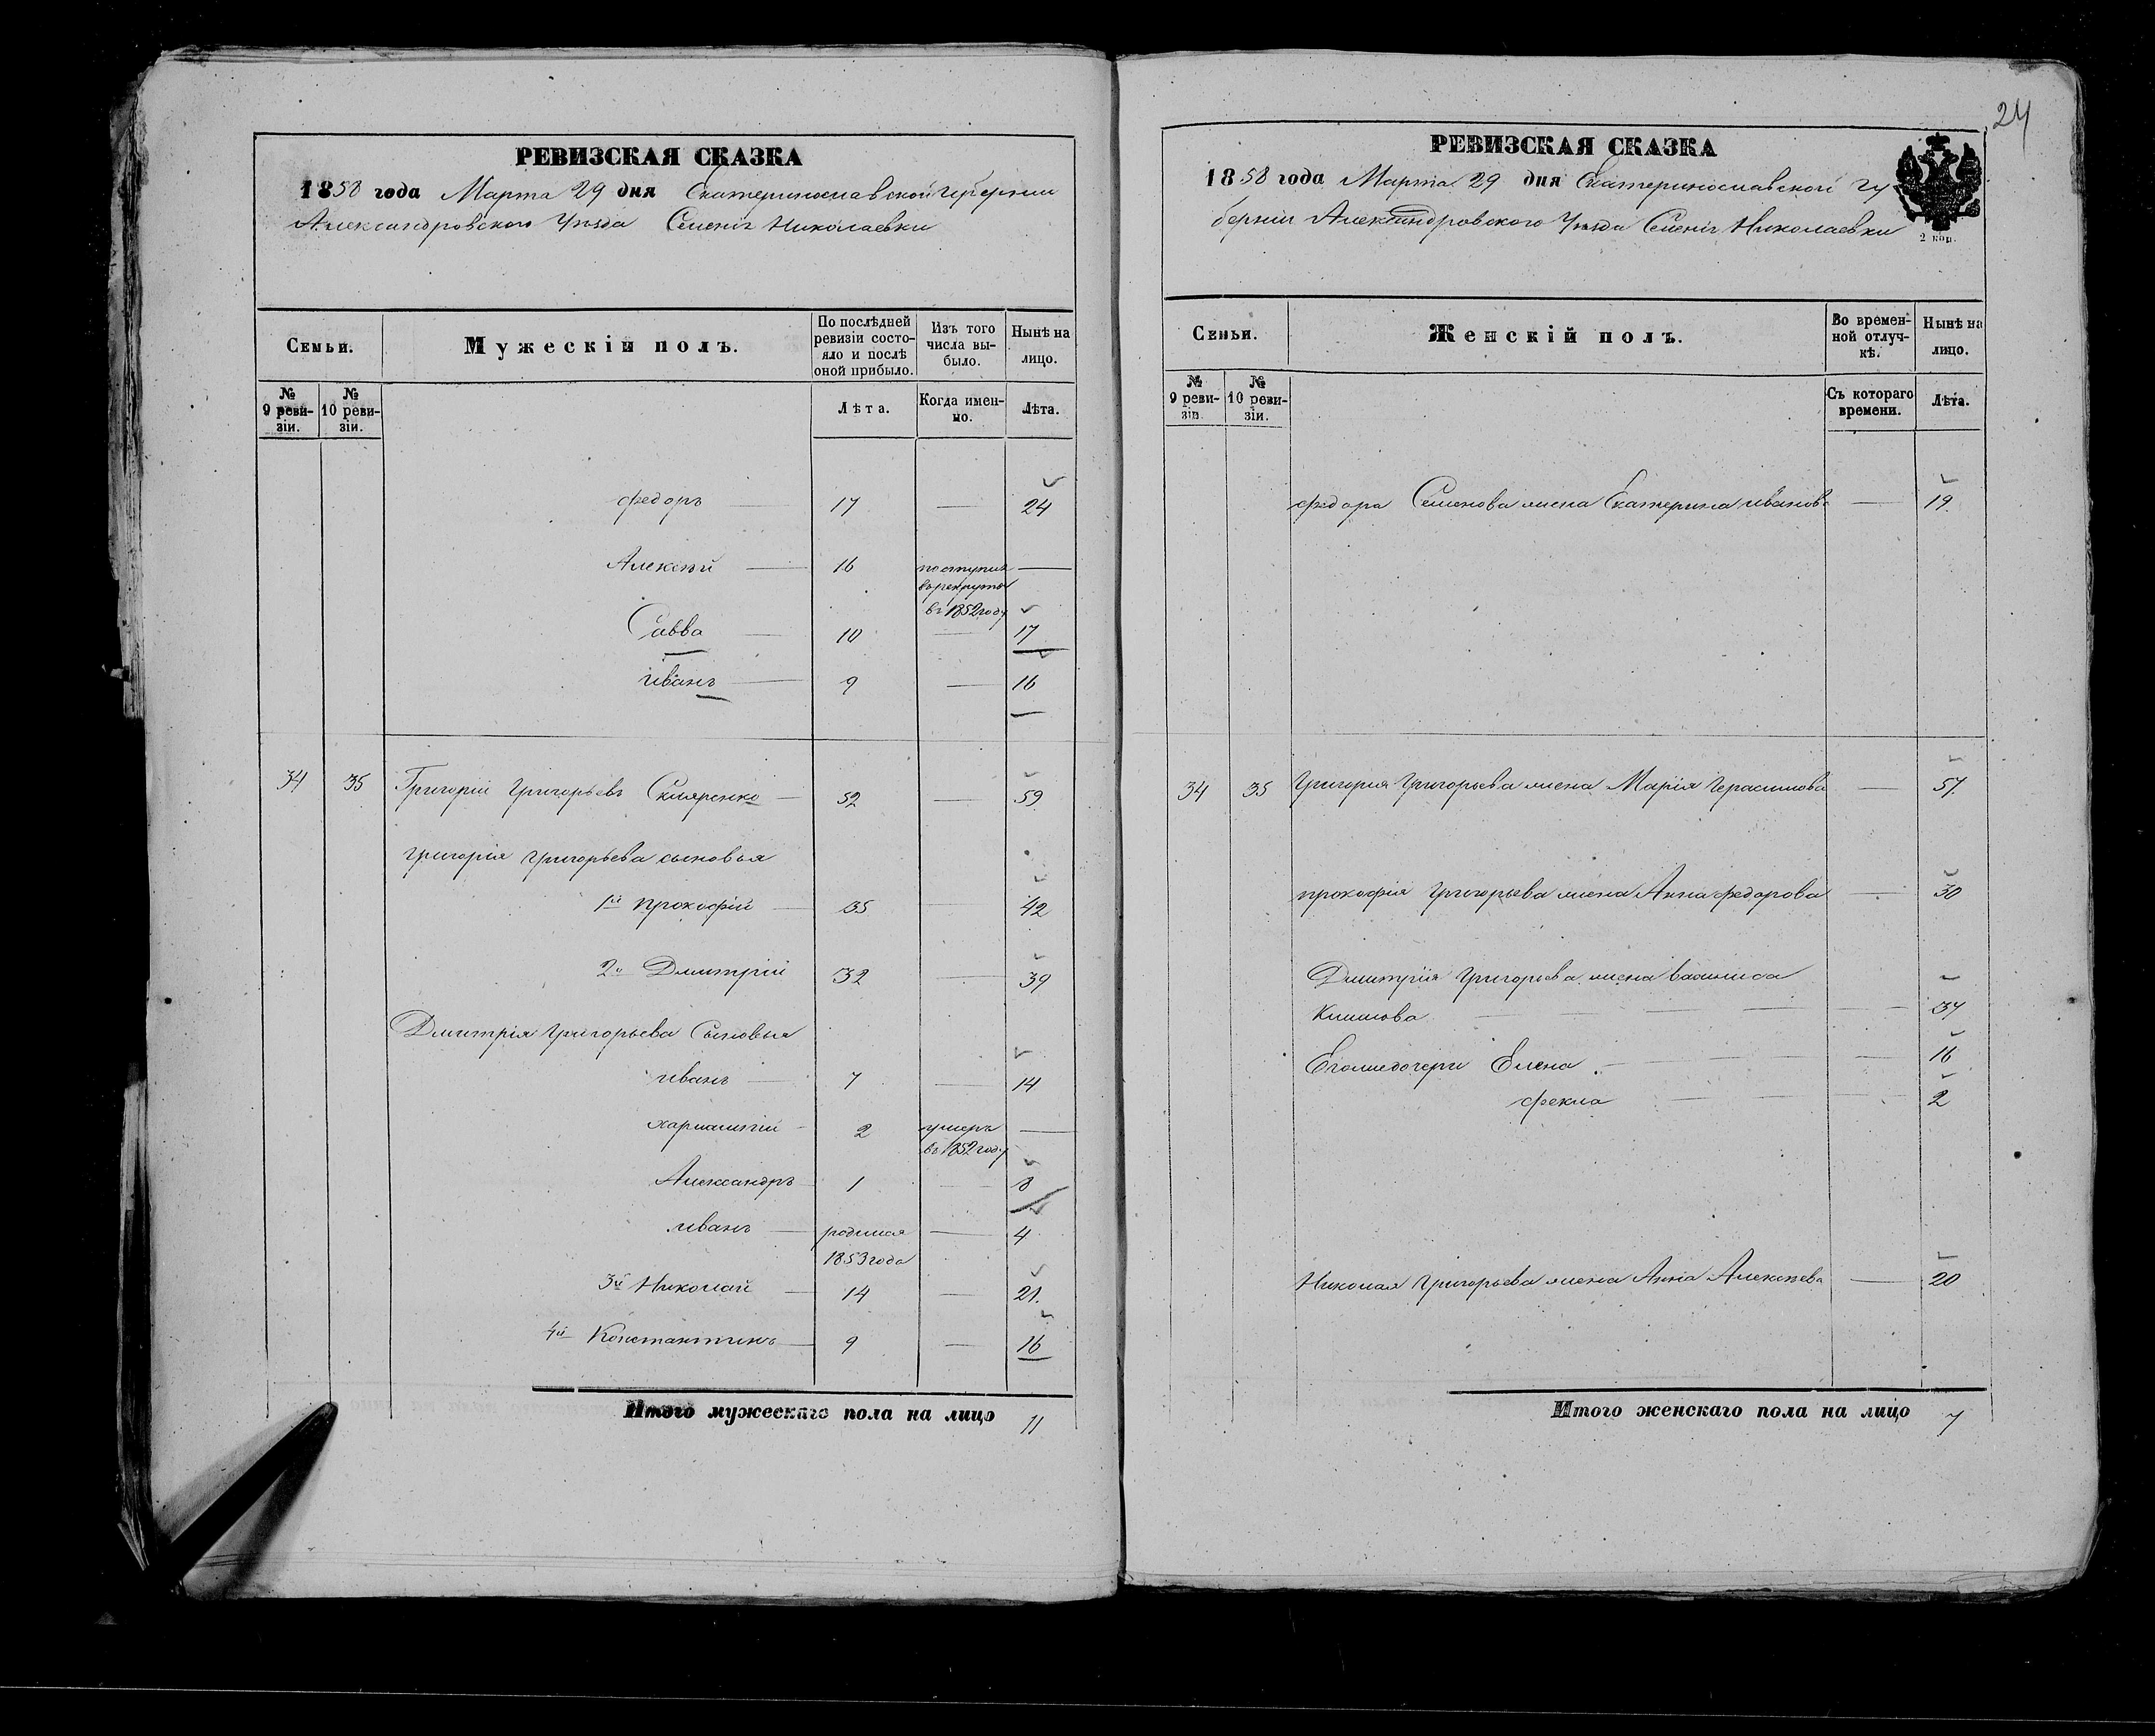 24
РЕВИЗСКАЯ СКАЗКА
1858 года Марта 29 дня Екатеринославской губернии
Александровского Уѣзда Селенія Николаевки
Семьи.
Мужескій полъ.
По послѣдней ревизіи состояло и послѣ оной прибыло.
Изъ того числа выбыло.
Нынѣ на лицо.
№ 9 ревизіи.
№ 10 ревизіи.
Лѣта.
Когда именно.
Лѣта.
Федоръ — 17 — 24
Алексѣй — 16 поступилъ —
въ рекруты
въ 1852 году
Савва — 10 — 17
Иванъ — 9 — 16
34 35 Григорій Григорьевъ Скляренко — 52 — 59
Григорія Григорьева сыновья
1й Прокофій — 35 — 42
2й Дмитрій 32 — 39
Дмитрія Григорьева Сыновья
Иванъ — 7 — 14
Харлампій - 2 умеръ —
въ 1852 году
Александръ 1 — 8
Иванъ — родился — 4
1853 года
3й Николай — 14 — 21.
4й Константинъ — 9 — 16
Итого мужескаго пола на лицо 11
РЕВИЗСКАЯ СКАЗКА
1858 года Марта 29 дня Екатеринославской гу
берніи Александровского Уѣзда Селенія Николаевки
2 коп.
Семьи.
Женскій полъ.
Во временной отлучкѣ.
Нынѣ на лицо.
№ 9 ревизіи.
№ 10 ревизіи.
Съ котораго времени.
Лѣта.
Федора Семенова жена Екатерина Иванова — 19.
34 35 Григорія Григорьева жена Марія Герасимова — 57.
Прокофія Григорьева жена Анна Федорова — 30
Дмитрія Григорьева жена Василиса
Климова — 34
Его же дочери Елена — 16
Фекла — 2
Николая Григорьева жена Анна Алексѣева — 20
Итого женскаго пола на лицо 7